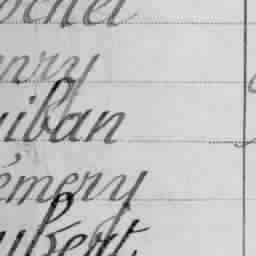 ochel
nry
uiban
émery
ubert